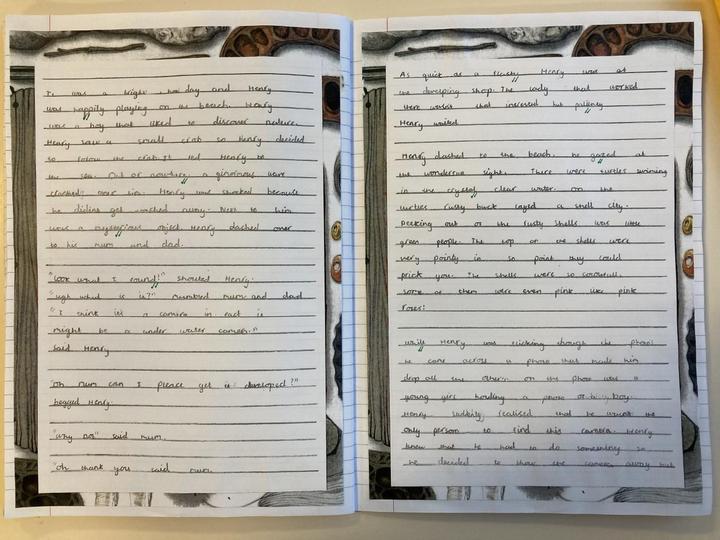 It was a bright day and Henry
was happily playing on the beach. Henry
was a boy that liked to discover nature.
Henry saw a small crab so Henry decided
to follow the crab. It led Henry to
the sea. Out of nowhere, a ginormous wave
crashed over him. Henry was shocked because
he didint get washed away. Next to him
was a mysterious object. Henry dashed over
to his mum and dad.
"Look what I found!" shouted Henry.
"ugh what is it?" mumbled mum and dad
"I think its a camera in fact it
might be a under water camera."
said Henry
"oh mum can I please get it developed?"
begged Henry.
"why not" said mum.
"oh thank you said mum.
As quiet as a Henry was at
the developing shop. The lady that worked
there wasnt that interested but
Henry waited
Henry dashed to the beach. he gazed at
the wonderous sight. There were turtles swiming
in the crystal clear water. on the
turtles rusty back layed a shell city.
Peeking out of the rusty shells was little
green people. The top of the shells were
very pointy in so point they could
prick you. The shells were so colourfull.
some of them were even pink like pink
roses.
while Henry was flicking through the photos
he came across a photo that made him
drop all the others. on the photo was a
young girl holding a photo of a boy.
Henry realised that he wasnt the
only person to find this camera. Henry
knew that he had to do something so
he decided to throw the camera away but